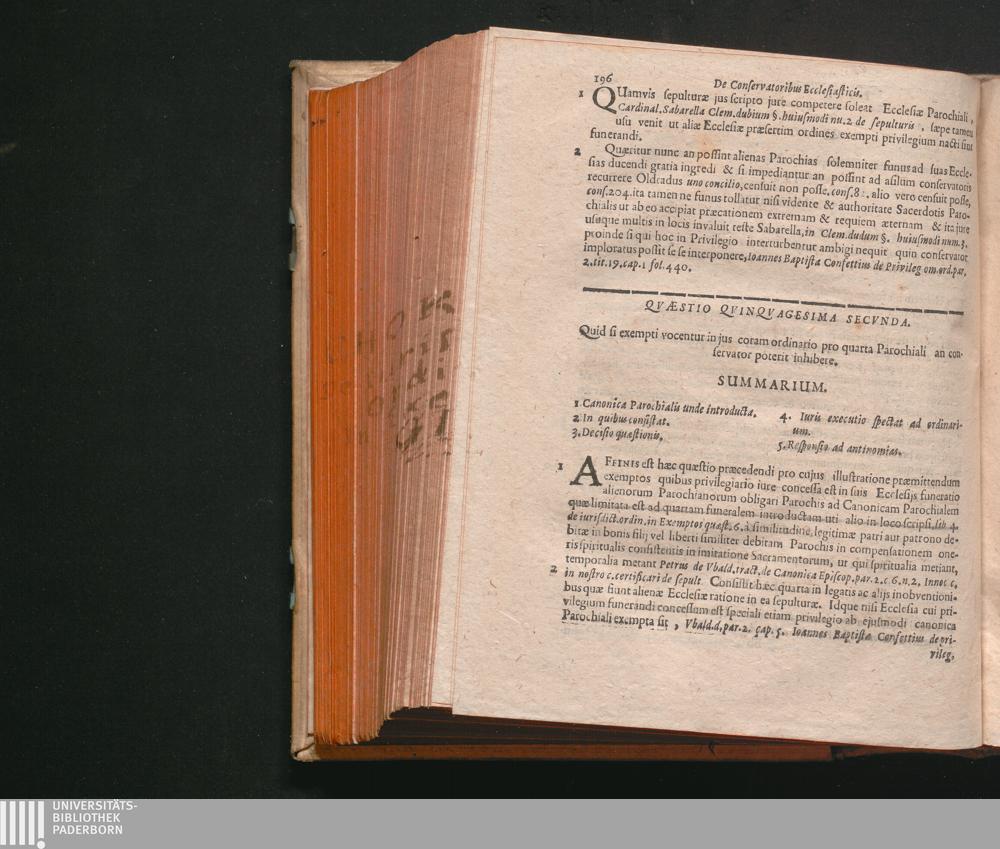 196
De Conservatoribus Ecclesiasticis.
1 QUamvis sepulturæ jus scripto jure competere soleat Ecclesiæ Parochiali,
Cardinal. Sabarella Clem. dubium §. huiusmodi nu. 2 de sepulturis, sæpe tamen
usu venit ut aliæ Ecclesiæ præsertim ordines exempti privilegium nacti sint
funerandi.
2 Quæritur nunc an possint alienas Parochias solemniter funus ad suas Eccle-
sias ducendi gratia ingredi & si impediantur an possint ad asilum conservatoris
recurrere Oldradus uno concilio, censuit non posse. cons. 8 alio vero censuit posse,
cons. 204. ita tamen ne funus tollatur nisi vidente & authoritate Sacerdotis Paro-
chialis ut ab eo accipiat præcationem extremam & requiem æternam & ita jure
usuque multis in locis invaluit teste Sabarella, in Clem. dudum §. huiusmodi num. 3.
proinde si qui hoc in Privilegio interturbentur ambigi nequit quin conservator
imploratus possit se se interponere, Ioannes Baptista Confettius de Privileg om. ord. par.
2. tit. 19. cap. 1 fol. 440.
QVÆSTIO QVINQVAGESIMA SECVNDA.
Quid si exempti vocentur in jus coram ordinario pro quarta Parochiali an con-
servator poterit inhibere.
SUMMARIUM.
1 Canonica Parochialis unde introducta.
2 In quibus consistat.
3. Decisio quæstionis.
4. Iuris executio spectat ad ordinari-
um.
5. Responsio ad antinomias.
1 AFFINIS est hæc quæstio præcedendi pro cujus illustratione præmittendum
exemptos quibus privilegiario iure concessa est in suis Ecclesijs funeratio
alienorum Parochianorum obligari Parochis ad Canonicam Parochialem
quæ limitata est ad quartam funeralem introductam uti alio in loco scripsi, lib 4.
de iurisdict. ordin. in Exemptos quæst. 6. à similitudine, legitimæ patri aut patrono de-
bitæ in bonis filij vel liberti similiter debitam Parochis in compensationem one-
ris spiritualis consistentis in imitatione Sacramentorum, ut qui spiritualia metiant,
temporalia metant Petrus de Vbald. tract. de Canonica Episcop. par. 2. c. 6. n. 2. Innoc c,
2 in nostro c. certificari de sepult. Consistit hæc quarta in legatis ac alijs inobventioni-
bus quæ fiunt alienæ Ecclesiæ ratione in ea sepulturæ. Idque nisi Ecclesia cui pri-
vilegium funerandi concessum est speciali etiam privilegio ab ejusmodi canonica
Parochiali exempta sit, Vbald. d. par. 2. cap. 5. Ioannes Baptista Confettius de pri-
vileg.
UNIVERSITÄTS-
BIBLIOTHEK
PADERBORN